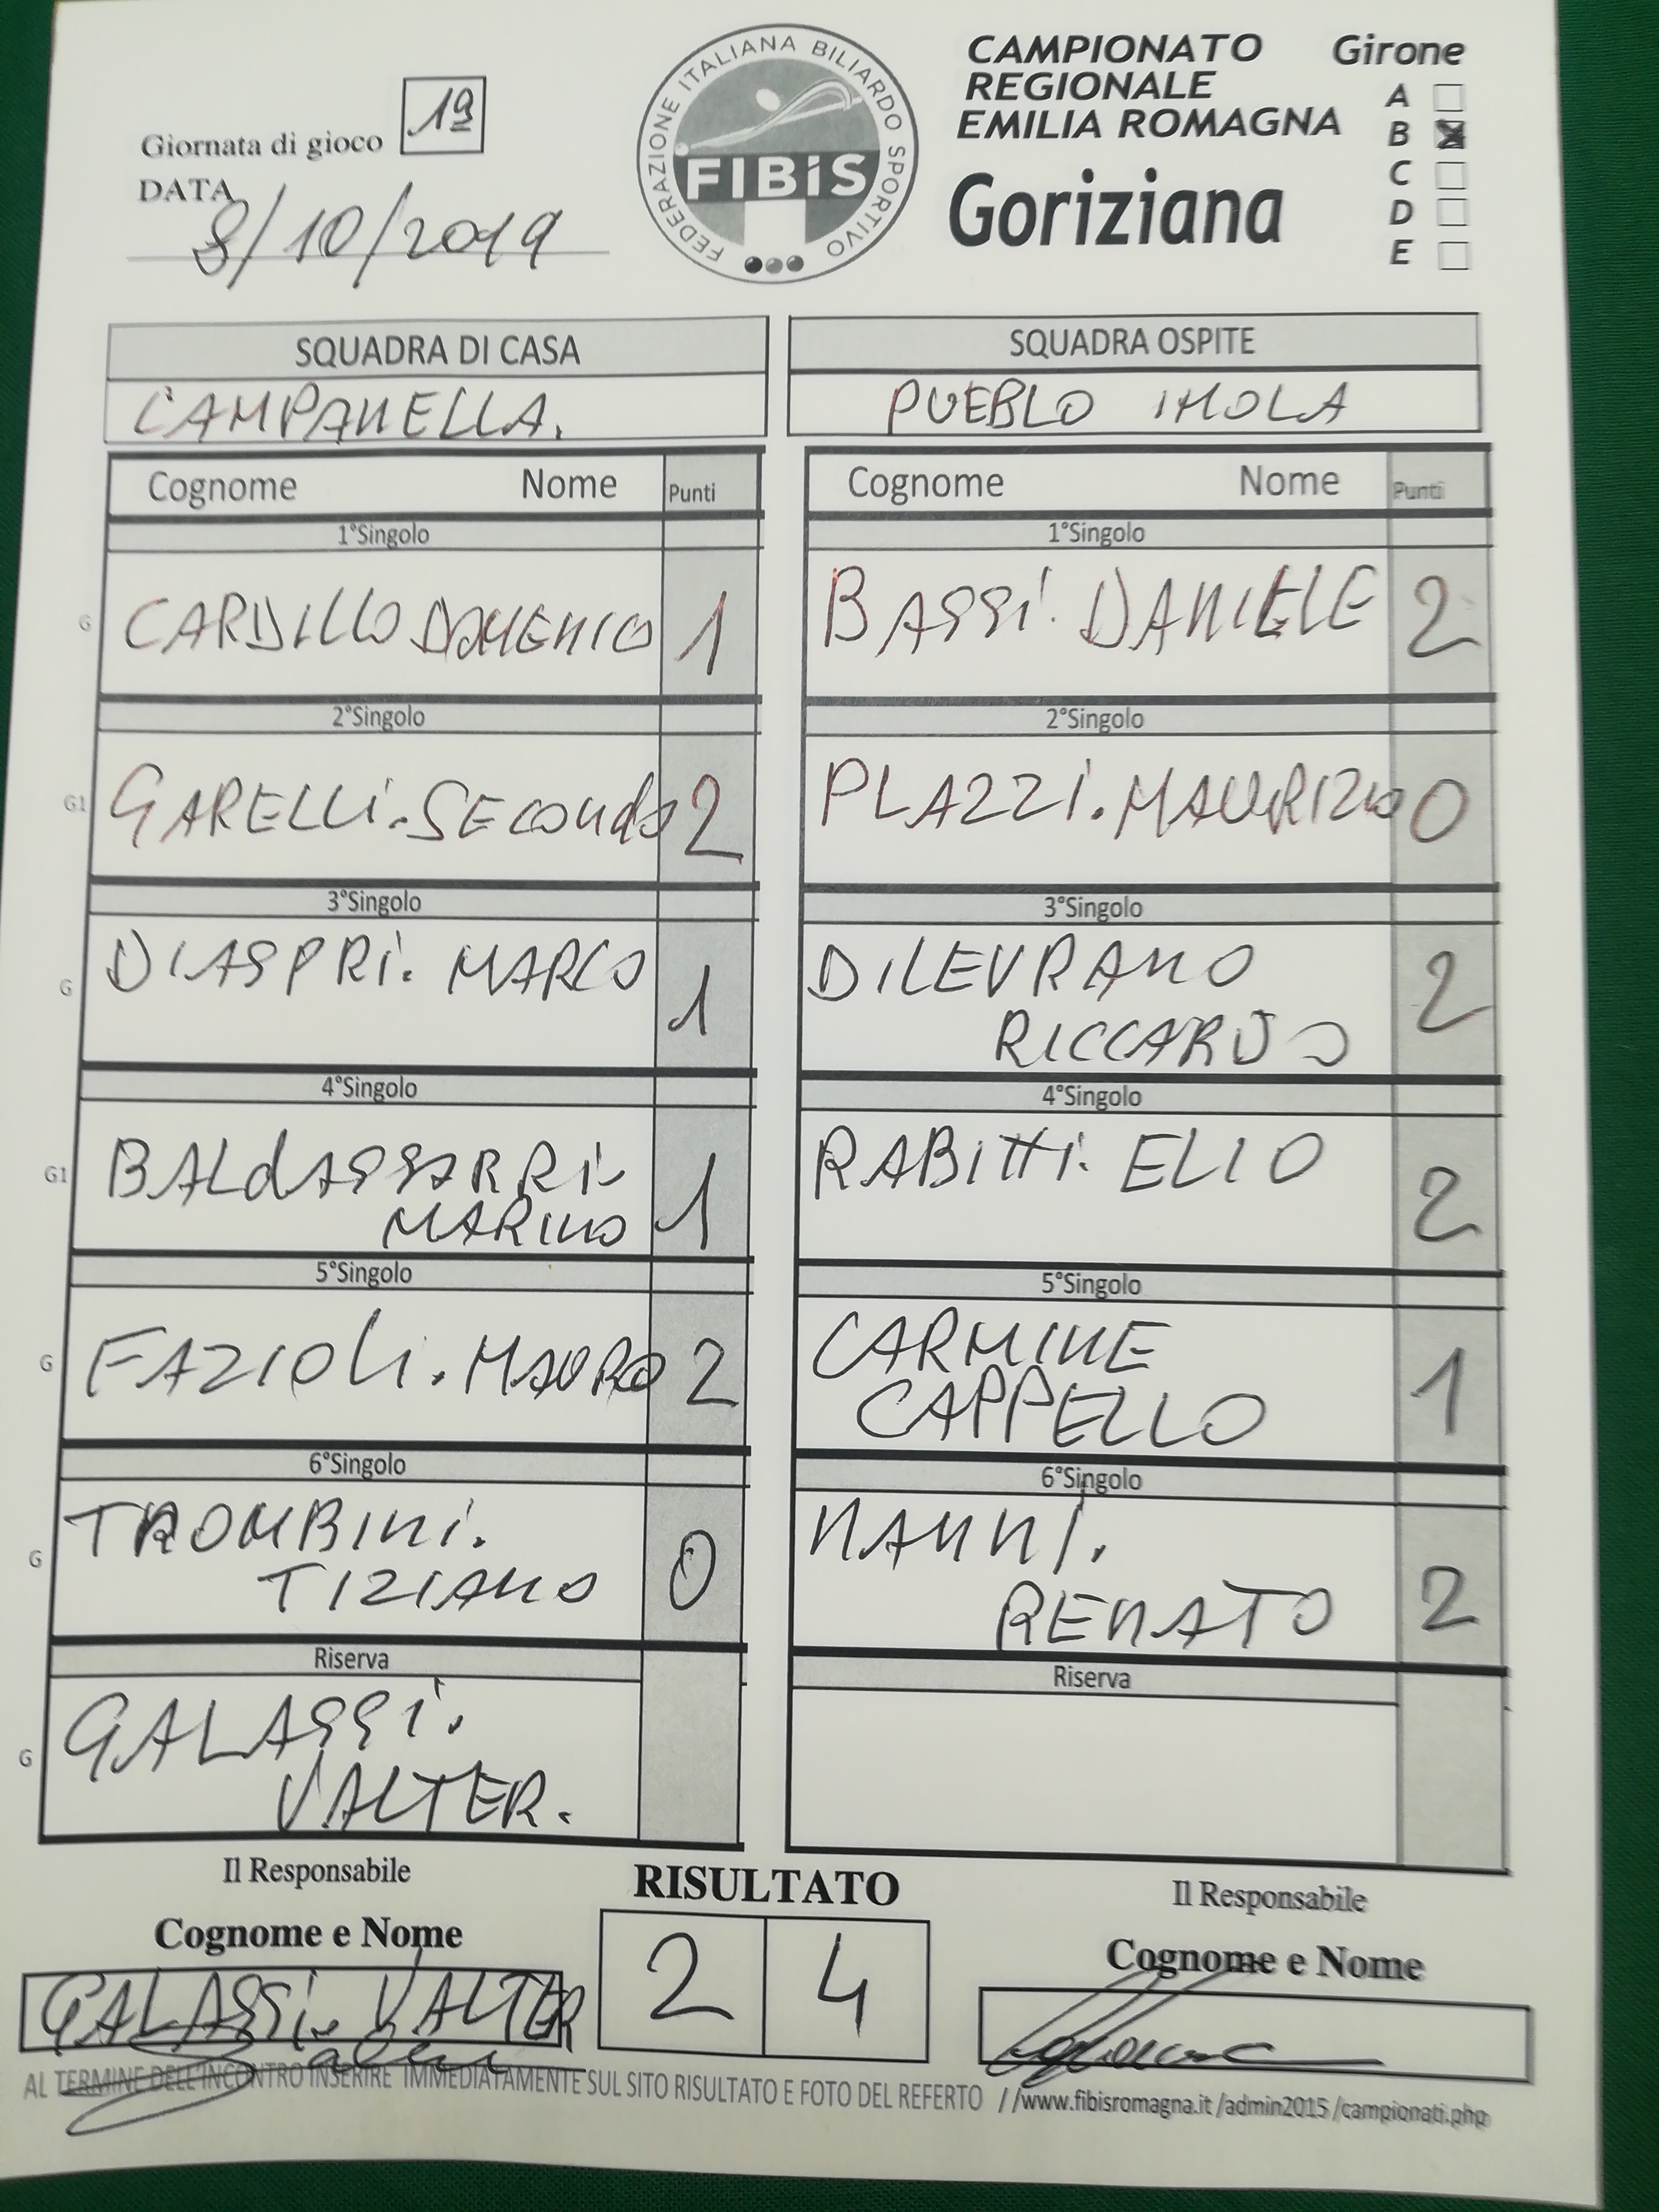 Giornata di gioco 1ª
DATA 8/10/2019
FEDERAZIONE ITALIANA BILIARDO SPORTIVO
FIBiS
CAMPIONATO
REGIONALE
EMILIA ROMAGNA
Goriziana
Girone
A
B X
C
D
E
SQUADRA DI CASA
CAMPANELLA.
SQUADRA OSPITE
PUEBLO IMOLA
Cognome Nome Punti
Cognome Nome Punti
1°Singolo
G CARDILLO DOMENICO 1
1°Singolo
BASSI. DANIELE 2
2°Singolo
G1 GARELLI. SECONDO 2
2°Singolo
PLAZZI. MAURIZIO 0
3°Singolo
G DIASPRI. MARCO 1
3°Singolo
DILEVRANO
RICCARDO 2
4°Singolo
G1 BALDASSARRI
MARINO 1
4°Singolo
RABITTI. ELIO 2
5°Singolo
G FAZIOLI. MAURO 2
5°Singolo
CARMINE
CAPPELLO 1
6°Singolo
G TROMBINI.
TIZIANO 0
6°Singolo
NANNI.
RENATO 2
Riserva
G GALASSI.
VALTER.
Riserva
Il Responsabile
Cognome e Nome
GALASSI. VALTER
RISULTATO
2 4
Il Responsabile
Cognome e Nome
AL TERMINE DELL'INCONTRO INSERIRE IMMEDIATAMENTE SUL SITO RISULTATO E FOTO DEL REFERTO //www.fibisromagna.it /admin2015 /campionati.php